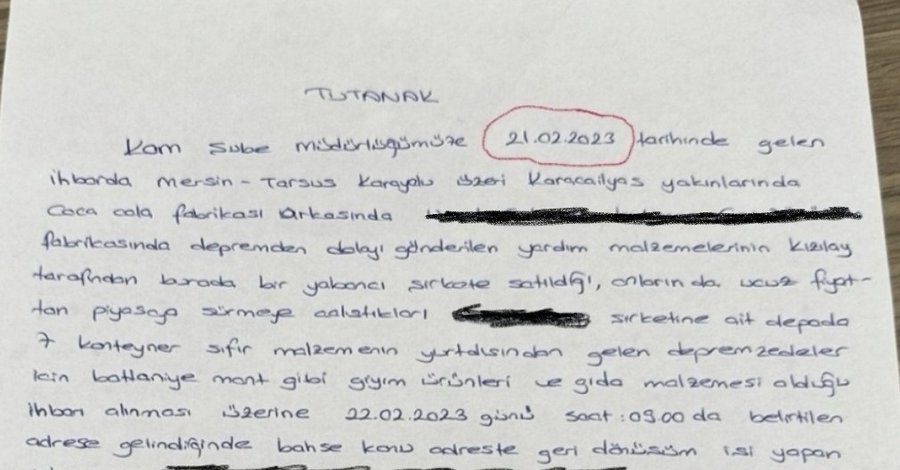 TUTANAK
Kom Şube müdürlüğümüze 21.02.2023 tarihinde gelen
ihbarda mersin - Tarsus Karayolu üzeri Karacailyas yakınlarında
Coca cola fabrikası arkasında
fabrikasında depremden dolayı gönderilen yardım malzemelerinin Kızılay
tarafından burada bir yabancı şirkete satıldığı, onların da ucuz fiyat-
tan piyasaya sürmeye çalıştıkları şirketine ait depoda
7 konteyner sıfır malzemenin yurtdışından gelen depremzedeler
için battaniye mont gibi giyim ürünleri ve gıda malzemesi olduğu
ihbarı alınması üzerine 22.02.2023 günü saat:09.00 da belirtilen
adrese gelindiğinde bahse konu adreste geri dönüşüm işi yapan